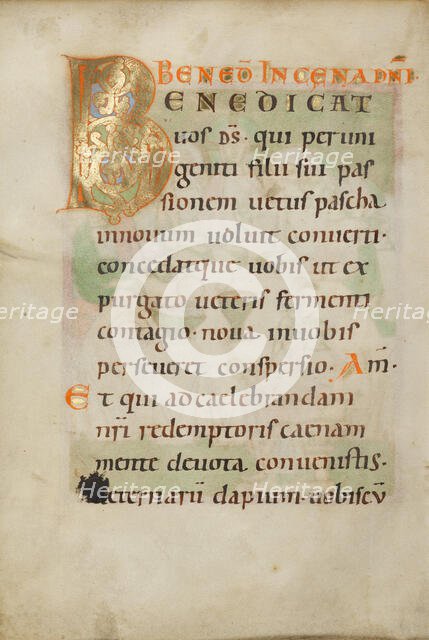 BENED̄ IN CENA DNĪ.
BENEDICAT
uos D̄S · qui per uni
geniti filii sui pas
sionem uetus pascha
in nouum uoluit conuerti ·
concedatque uobis ut ex
purgato ueteris fermenti
contagio · noua in uobis
perseueret conspersio · Am̄.
Et qui ad caelebrandam
nr̄i redemptoris caenam
mente deuota conuenistis ·
aeternarū dapium uobiscū
Heritage
Heritage
Heritage
Heritage
Heritage
Heritage
Heritage